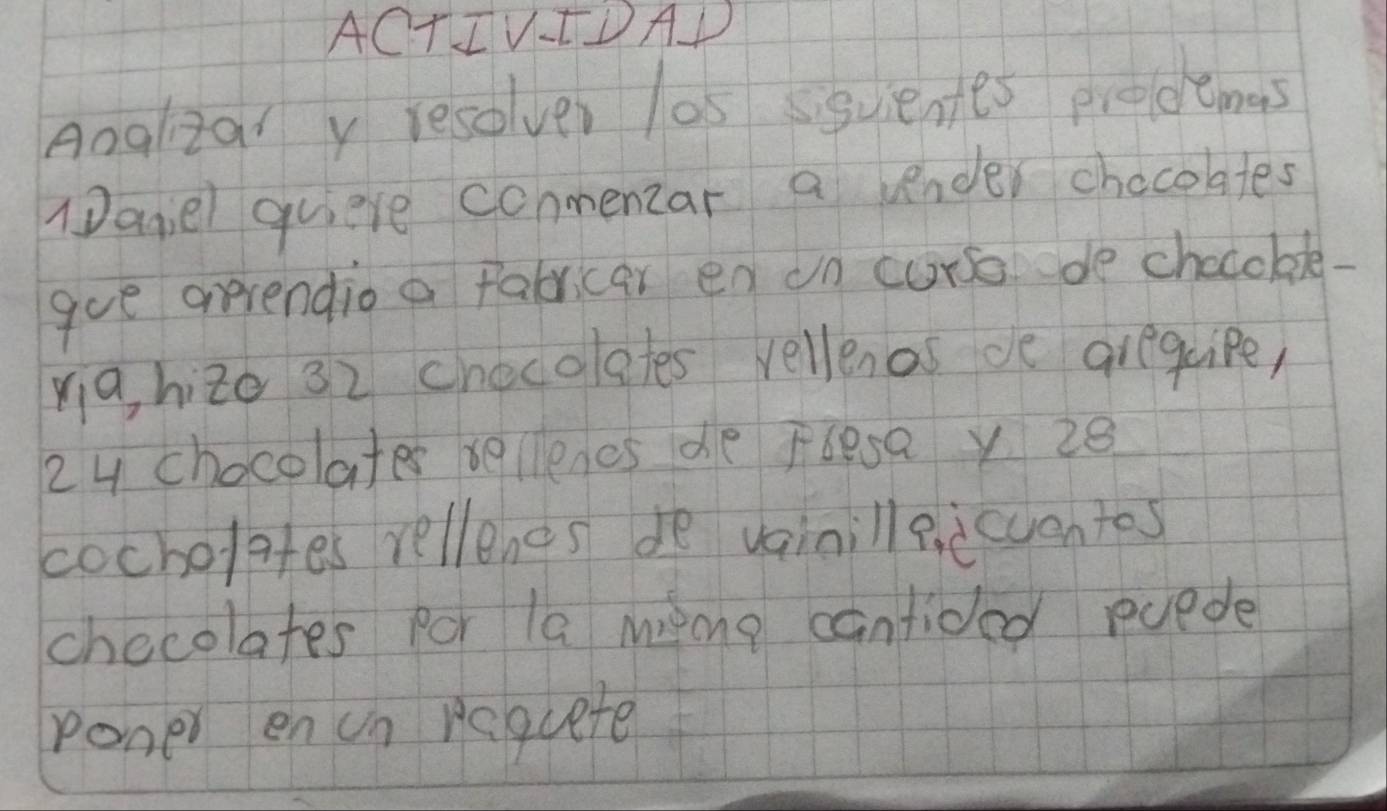 ACTIVIDAD
Analizar y resolver los siguientes problemas
1 Daniel quiere conmenzar a vender chocolates
que aprendio a fabricar en un curso de chocolate-
ria, hizo 32 chocolates rellenos de arequipe,
24 chocolates rellenos de fresa y 28
cocholates rellenos de vainilla,¿cuantos
chocolates por la misma cantidad puede
poner en un paquete